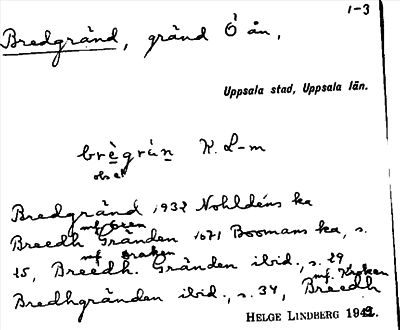 1-3
Bredgränd, gränd Ö ån,
Uppsala stad, Uppsala län.
brègrán K. L-m
obs ek
Bredgränd 1932 Nohldéns ka
Breedh Gränden 1671 Boomans ka, s.
25, Breedh. Gränden ibid., s. 29
Bredhgränden ibid., s. 34, Breedh
HELGE LINDBERG 1942.